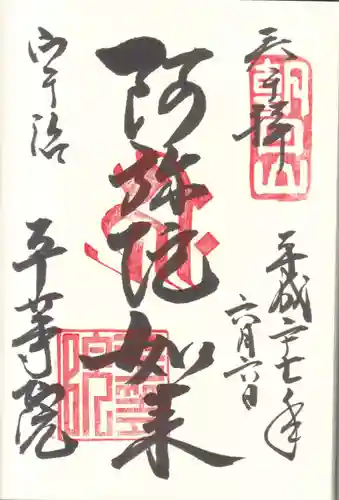 奉拝
朝日山
平成二十七年
六月六日
阿弥陀如来
宇治
平等院